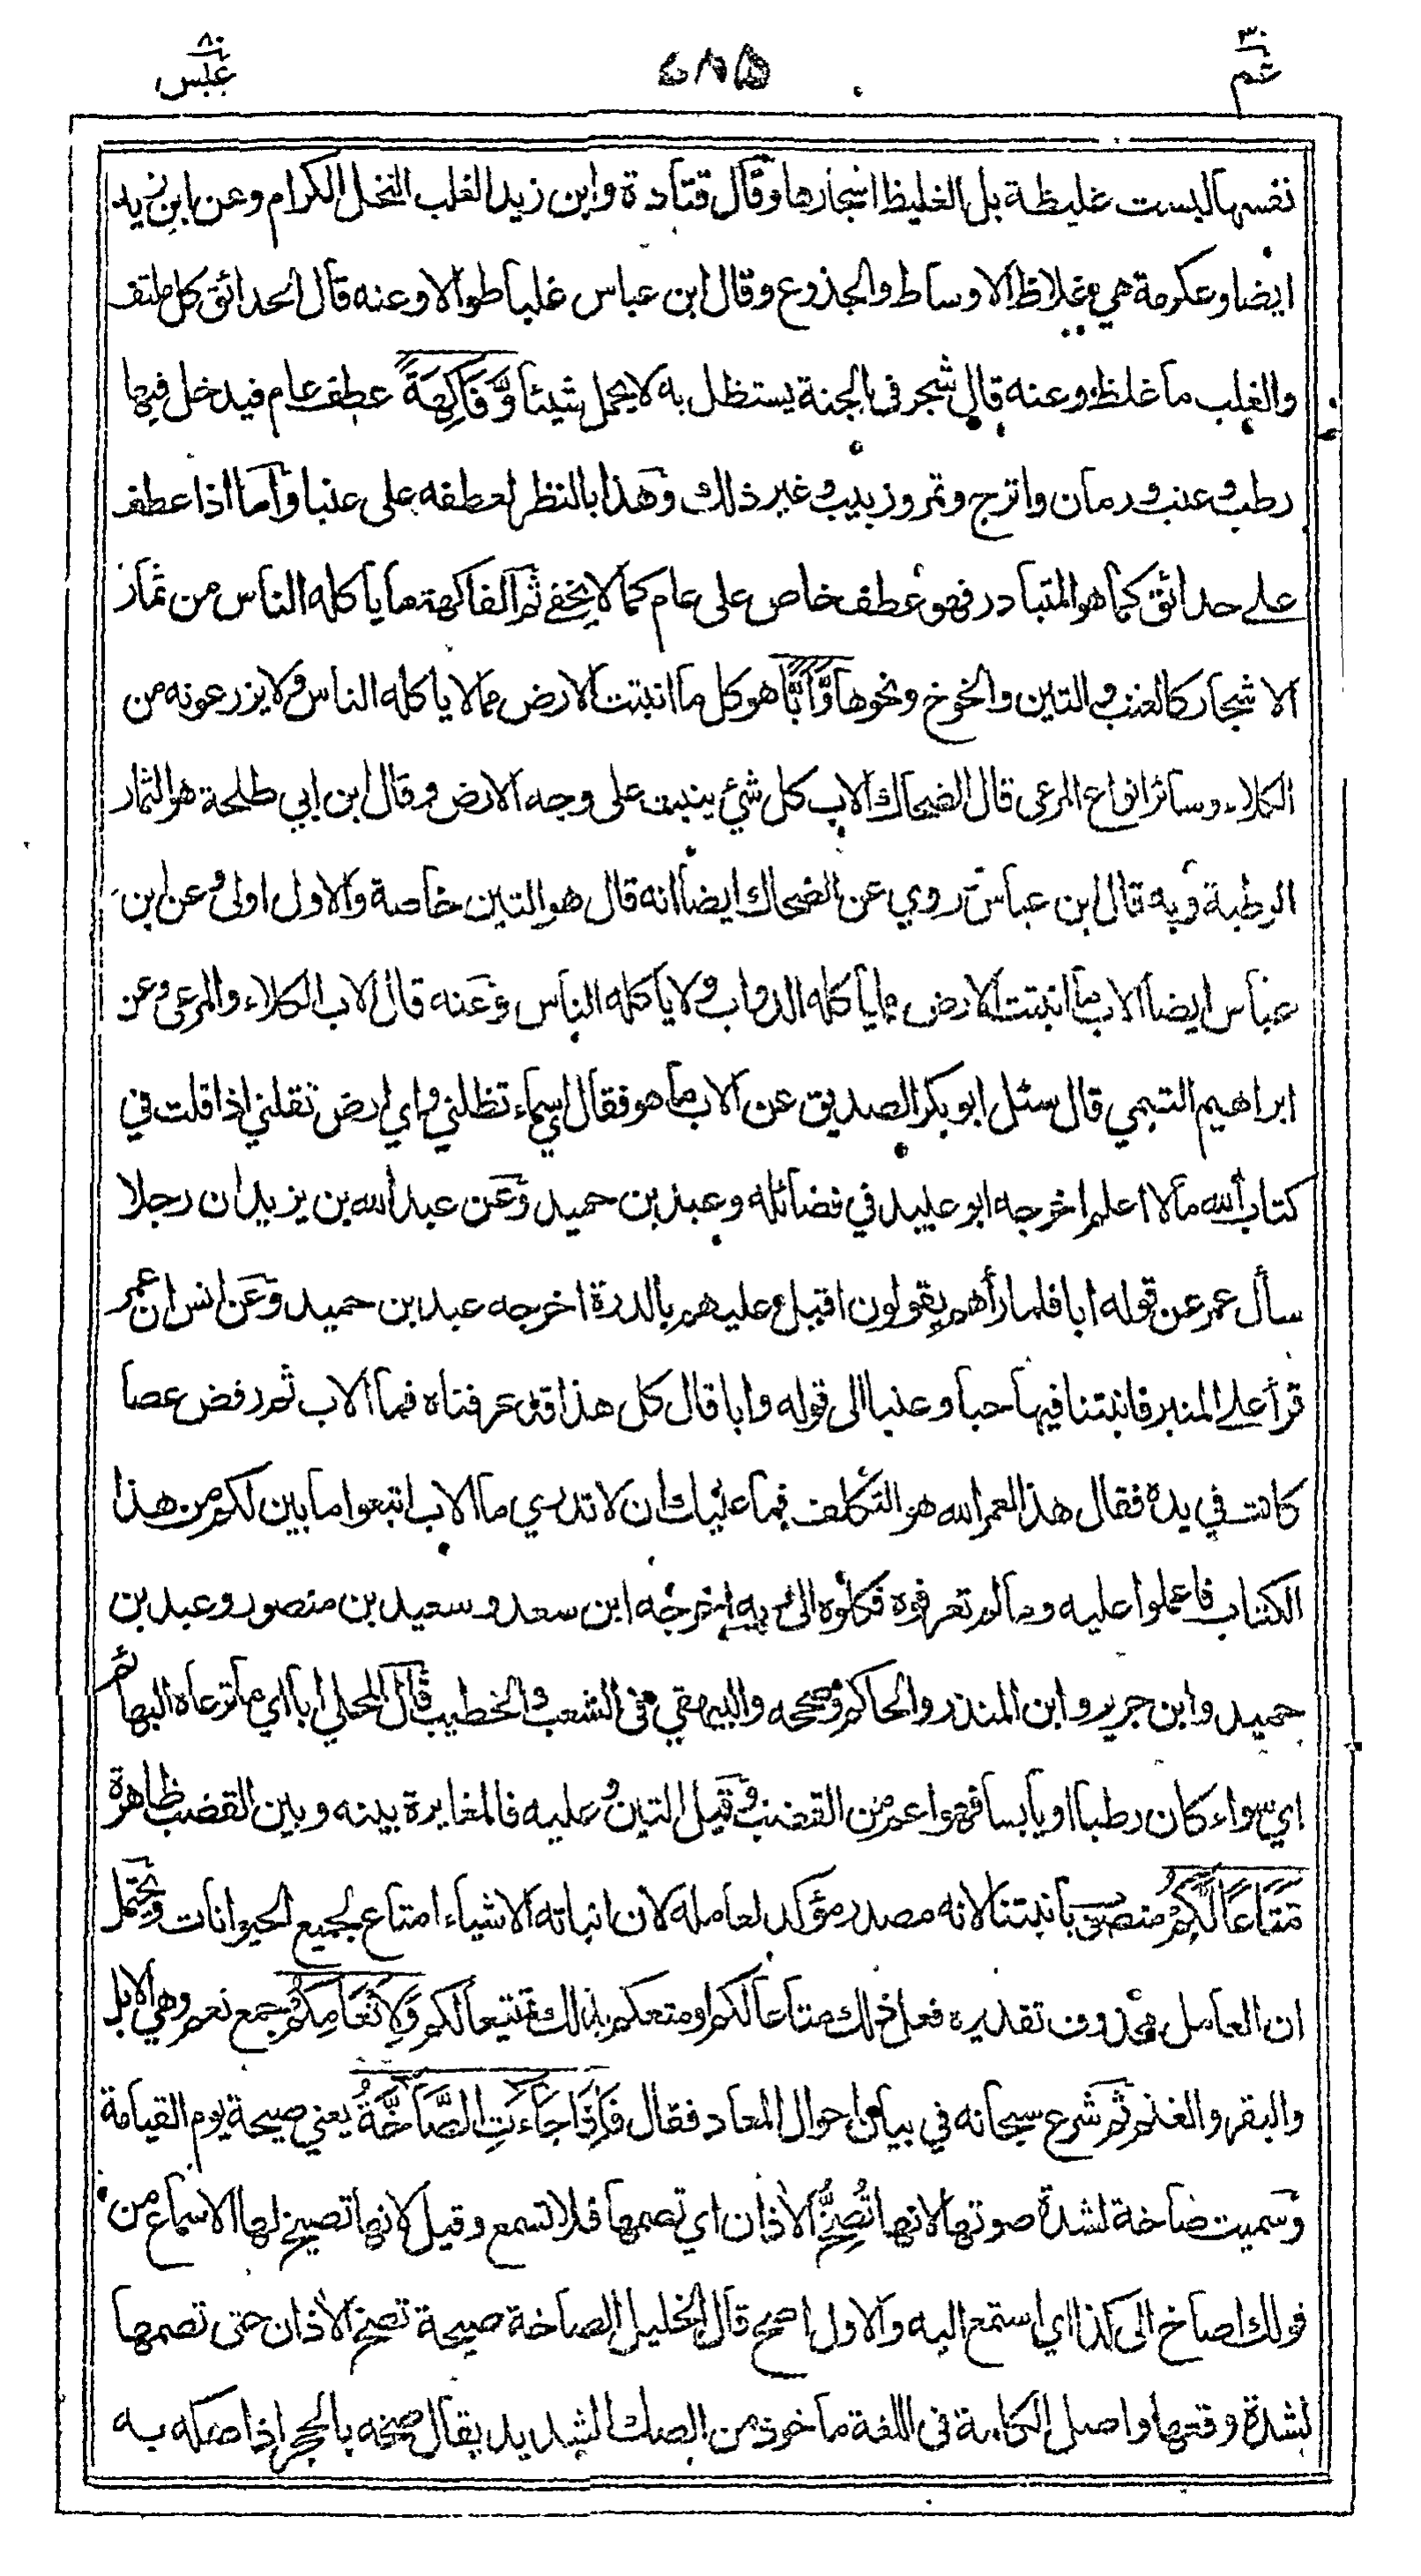 عم ٣٠
٤١٥
عبس ٨٠
نفسها ليست غليظة بل الغليظ اشجارها وقال قتادة وابن زيد الغلب النخل الكرام وعن ابن زيد
ايضا وعكرمة هي غلاظ الاوساط والجذوع وقال ابن عباس غلبا طوالا وعنه قال الحدائق كل ملتف
والغلب ما غلظ وعنه قال شجر فى الجنة يستظل به لا يحمل شيئا وَّفَاكِهَةً عطف عام فيدخل فيها
رطب وعنب ورمان واترج وتمر وزبيب وغير ذلك وهذا بالنظر لعطفه على عنبا واما اذا عطف
على حدائق كما هو المتبادر فهو عطف خاص على عام كما لا يخفى ثم الفاكهة ما يأكله الناس من ثمار
الاشجار كالعنب والتين والخوخ ونحوها وَّاَبًّا هو كل ما انبتت الارض مما لا يأكله الناس ولا يزرعونه من
الكلاء وسائر انواع المرعى قال الضحاك الاب كل شئ ينبت على وجه الارض وقال ابن ابي طلحة هو الثمار
الرطبة وبه قال ابن عباس روي عن الضحاك ايضا انه قال هو التين خاصة والاول اولى وعن ابن
عباس ايضا الاب ما انبتت الارض مما يأكله الدواب ولا يأكله الناس وعنه قال الاب الكلاء والمرعى وعن
ابراهيم التيمي قال سئل ابو بكر الصديق عن الاب ما هو فقال اي سماء تظلني واي ارض تقلني اذا قلت في
كتاب الله ما لا اعلم اخرجه ابو عبيد في فضائله وعبد بن حميد وعن عبد الله بن يزيد ان رجلا
سأل عمر عن قوله ابا فلما رأهم يقولون اقبل عليهم بالدرة اخرجه عبد بن حميد وعن انس ان عمر
قرأ على المنبر فانبتنا فيها حبا وعنبا الى قوله وابا قال كل هذا قد عرفناه فما الاب ثم رفض عصا
كانت في يده فقال هذا لعمر الله هو التكلف فما عليك ان لا تدري ما الاب اتبعوا ما بين لكم من هذا
الكتاب فاعملوا عليه وما لم تعرفوه فكلوه الى ربه اخرجه ابن سعد وسعيد بن منصور وعبد بن
حميد وابن جرير وابن المنذر والحاكم وصححه والبيهقي فى الشعب والخطيب قال المحلي ابا اي ما ترعاه البهائم
اي سواء كان رطبا او يابسا فهو اعم من القضب وقيل التين وعليه فالمغايرة بينه وبين القضب ظاهرة
مَّتَاعًا لَّكُمْ منصوب بانبتنا لانه مصدر مؤكد لعامله لان انباته الاشياء امتاع لجميع الحيوانات ويحتمل
ان العامل محذوف تقديره فعل ذلك متاعا لكم او متعكم بذلك تمتيعا لكم وَلِاَنْعَامِكُمْ جمع نعم وهي الابل
والبقر والغنم ثم شرع سبحانه في بيان احوال المعاد فقال فَاِذَا جَاءَتِ الصَّاخَّةُ يعني صيحة يوم القيامة
وسميت صاخة لشدة صوتها لانها تُصِخُّ الاذان اي تصمها فلا تسمع وقيل لانها تصيخ لها الاسماع من
قولك اصاخ الى كذا اي استمع اليه والاول اصح قال الخليل الصاخة صيحة تصخ الاذان حتى تصمها
لشدة وقعها واصل الكلمة فى اللغة ماخوذ من الصك الشديد يقال صخه بالحجر اذا صكه به